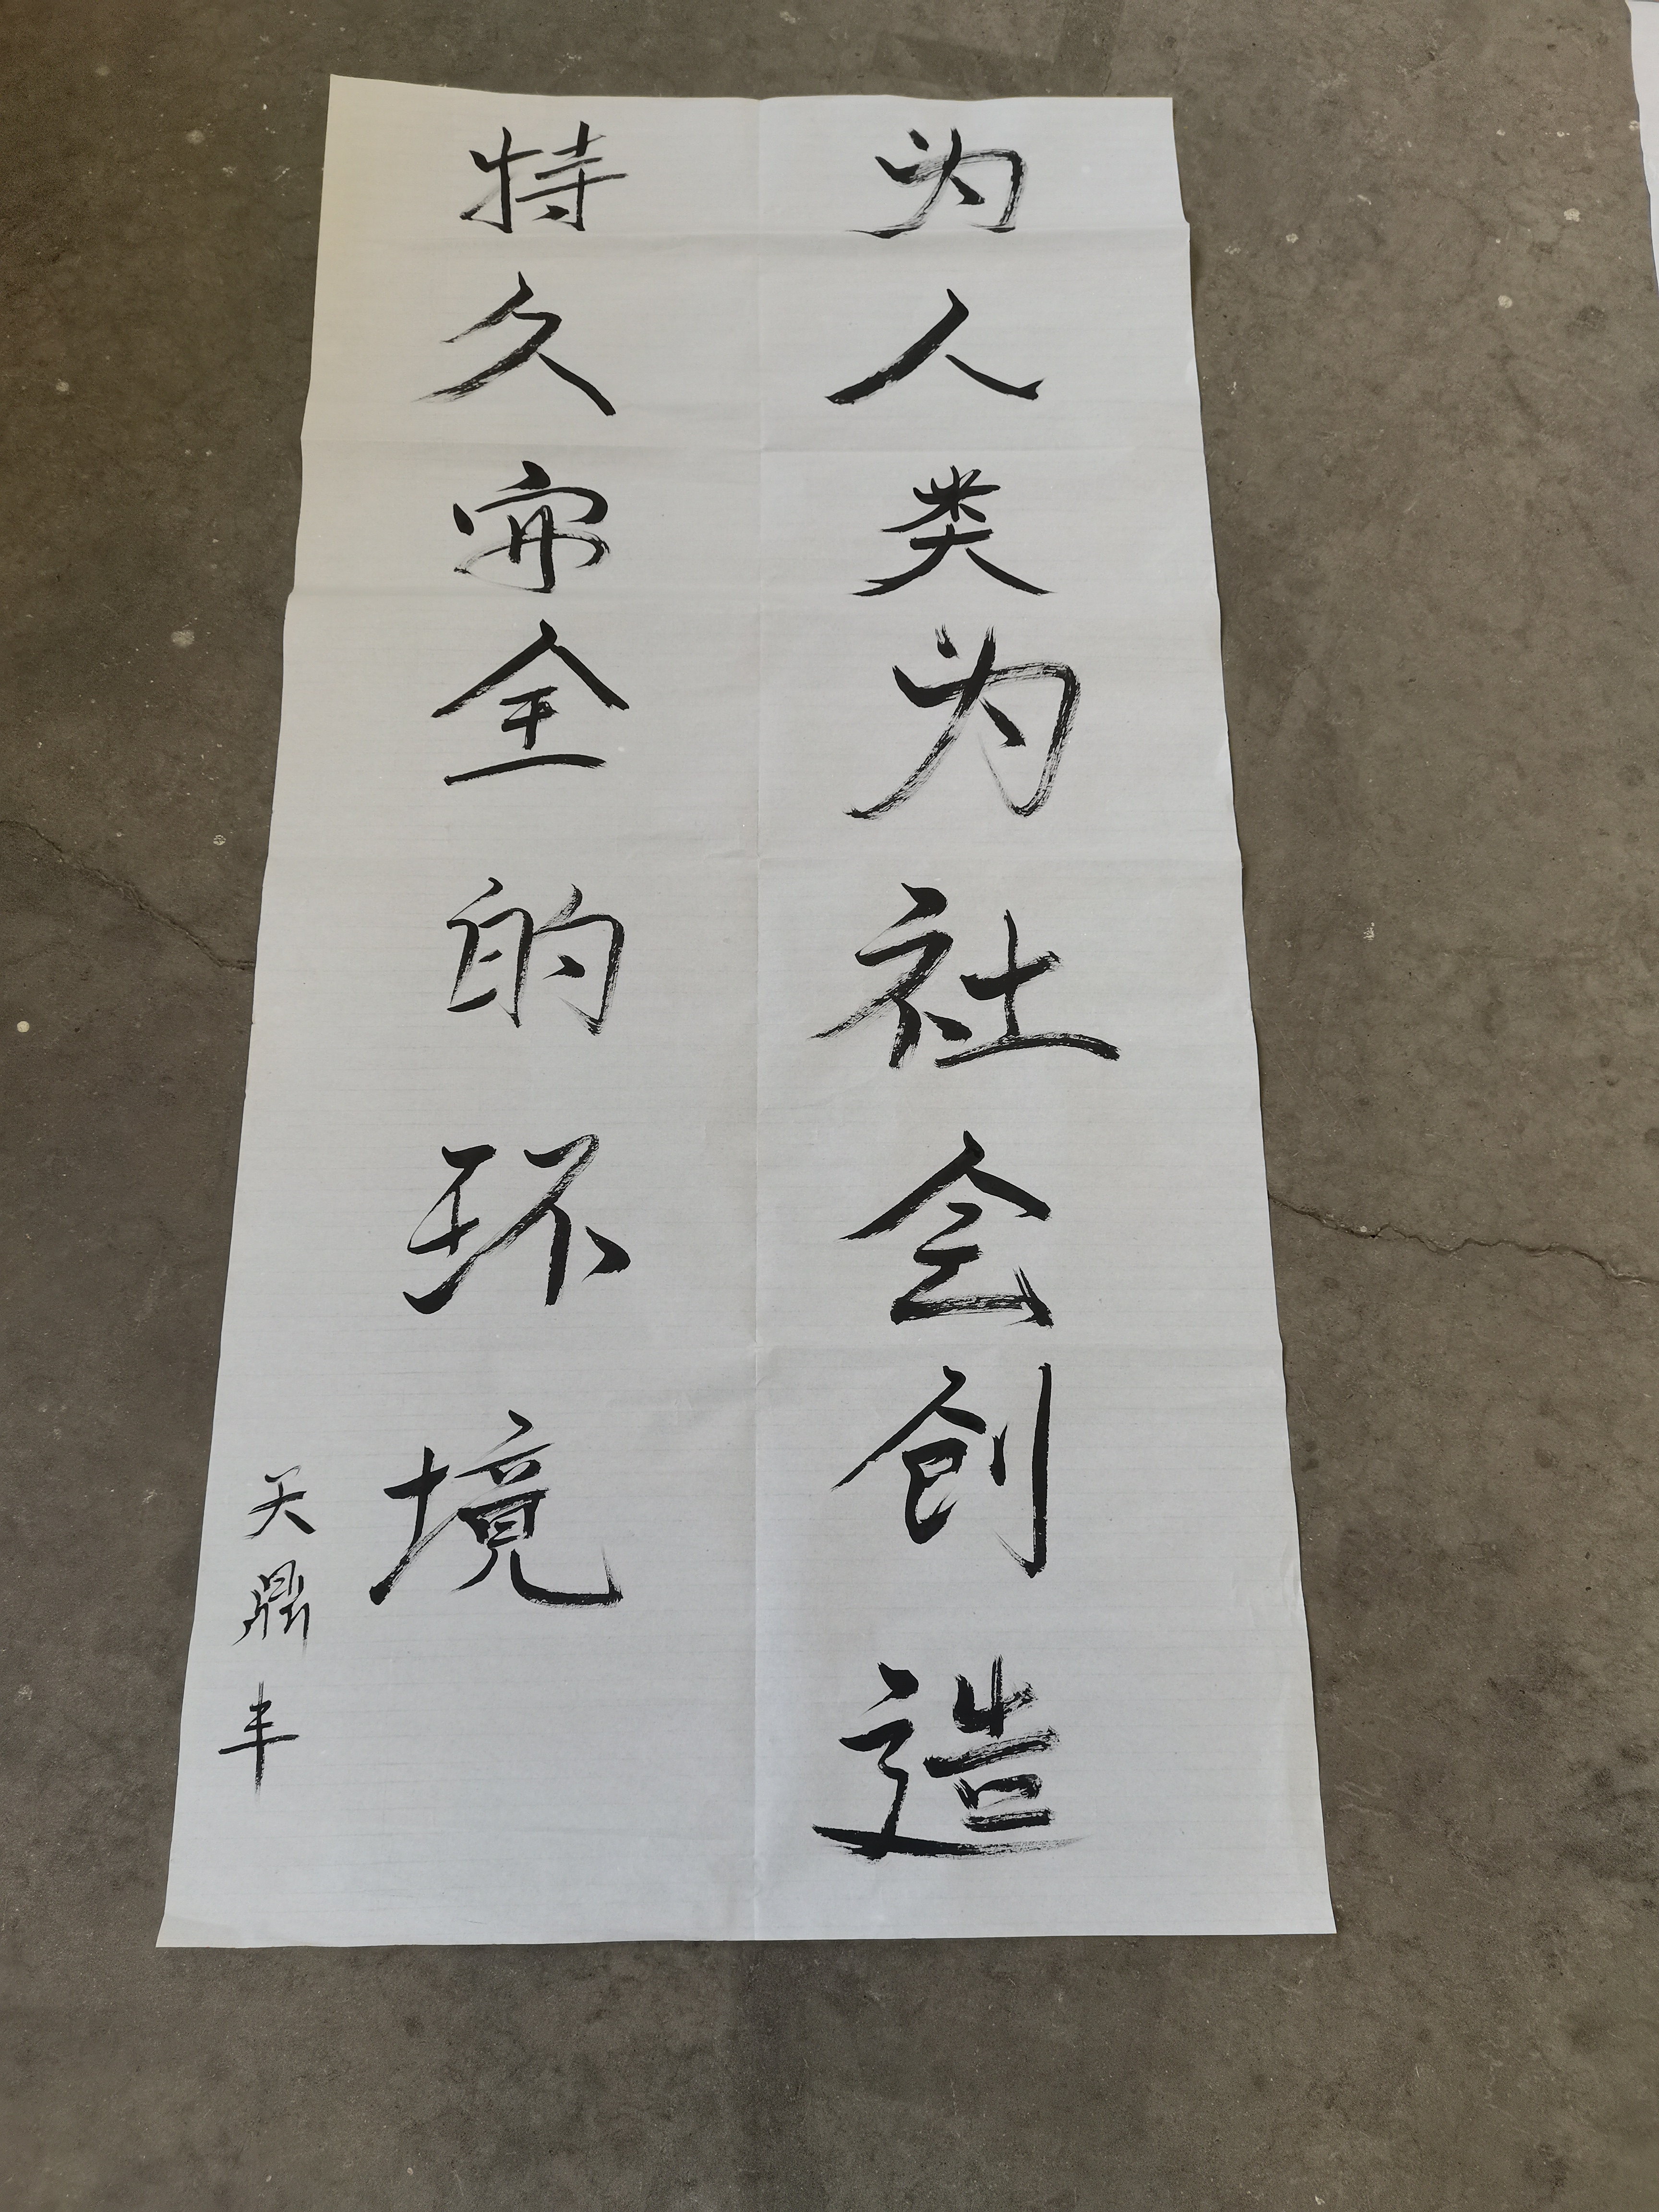 为人类为社会创造
持久安全的环境
天鼎丰